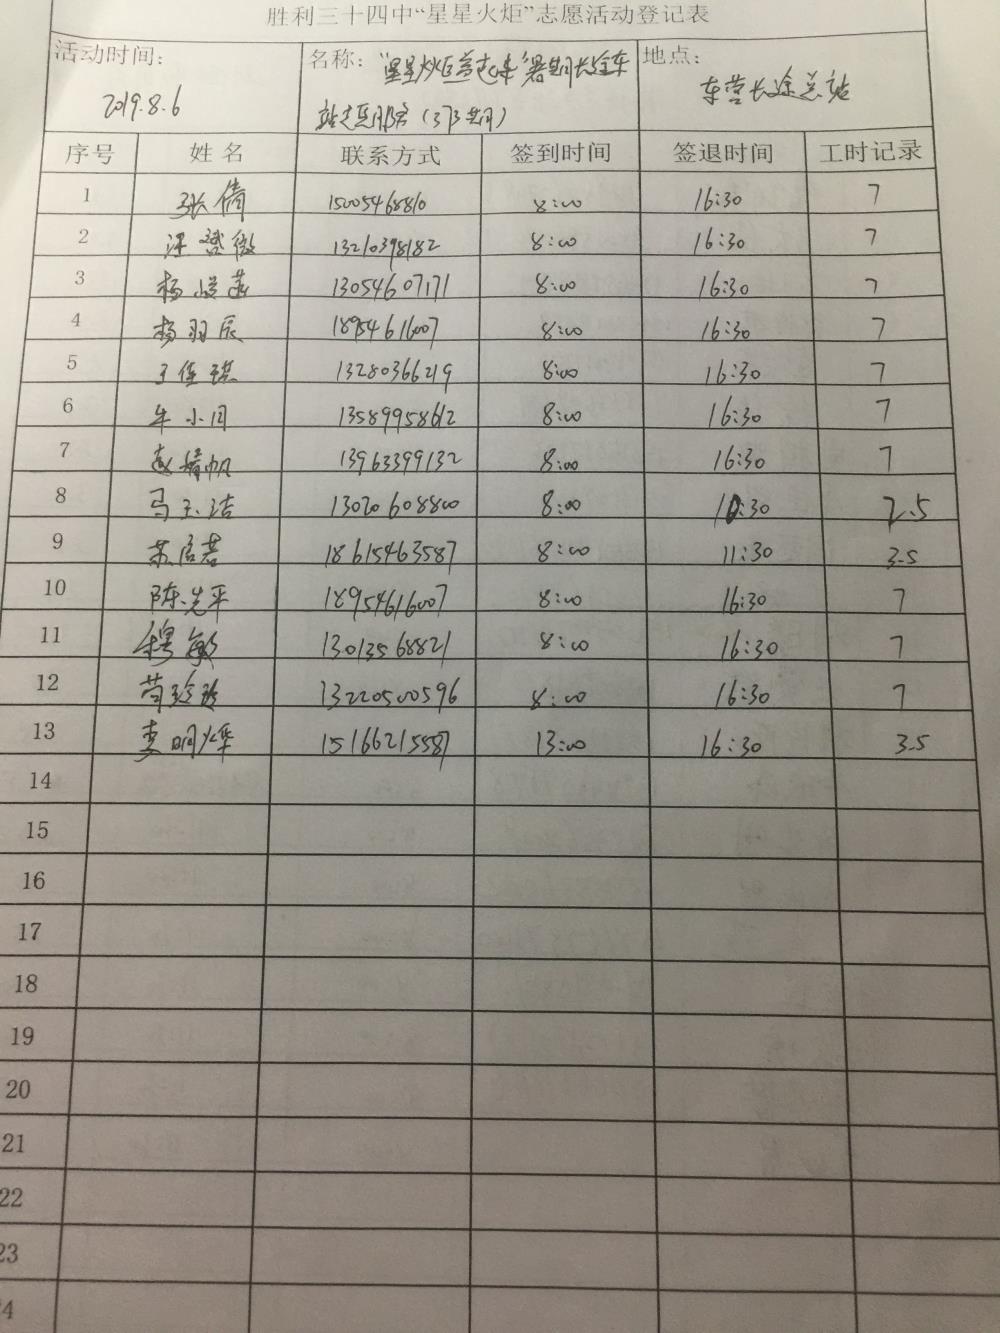 胜利三十四中“星星火炬”志愿活动登记表
活动时间: 名称: “星星火炬益起来”暑期长途车 地点:
2019.8.6 站志愿服务(37期) 东营长途总站
序号 姓名 联系方式 签到时间 签退时间 工时记录
1 张倩 15005468810 8:00 16:30 7
2 汪 微 13210398182 8:00 16:30 7
3 杨 13054607171 8:00 16:30 7
4 杨羽辰 18954616007 8:00 16:30 7
5 王佳琪 13280366219 8:00 16:30 7
6 牛小月 13589958612 8:00 16:30 7
7 赵婧帆 13963399132 8:00 16:30 7
8 马玉洁 13020608800 8:00 10:30 2.5
9 苏启茗 18615463587 8:00 11:30 3.5
10 陈先平 18954616007 8:00 16:30 7
11 穆敏 13013568821 8:00 16:30 7
12 苟玲玲 13220500596 8:00 16:30 7
13 李明烨 15166215587 13:00 16:30 3.5
14
15
16
17
18
19
20
21
22
23
4